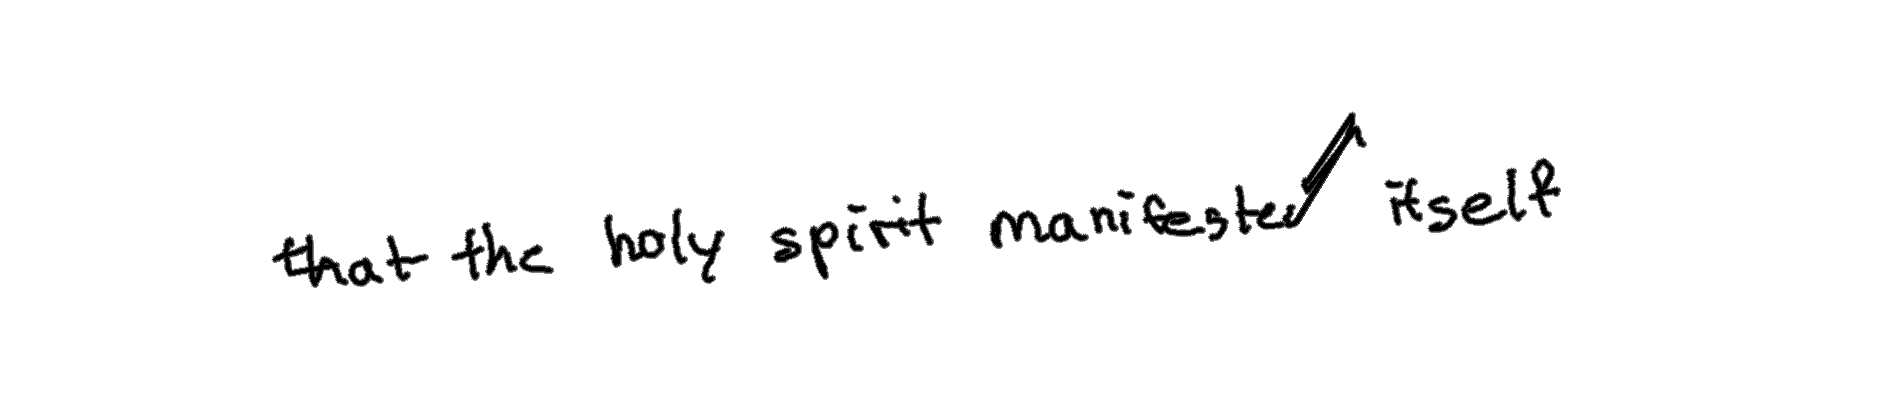 that the holy spirit manifested itself